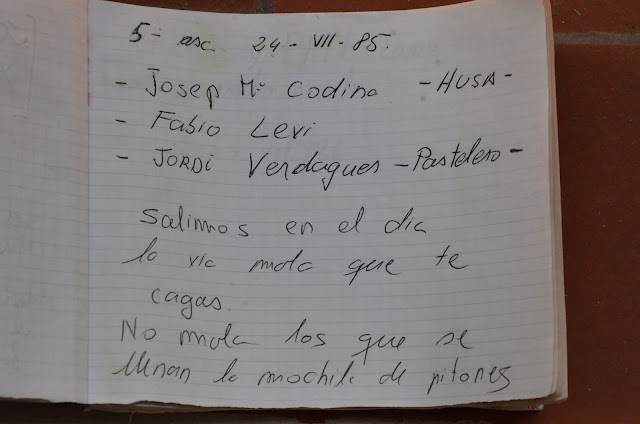 5- asc. 24 - VII - 85.
- Josep Mª Codina - HUSA -
- Fabio Levi
- JORDi Verdagues - Pastelero -
Salimos en el dia
la via mola que te
cagas.
No mola los que se
llenan la mochila de pitones